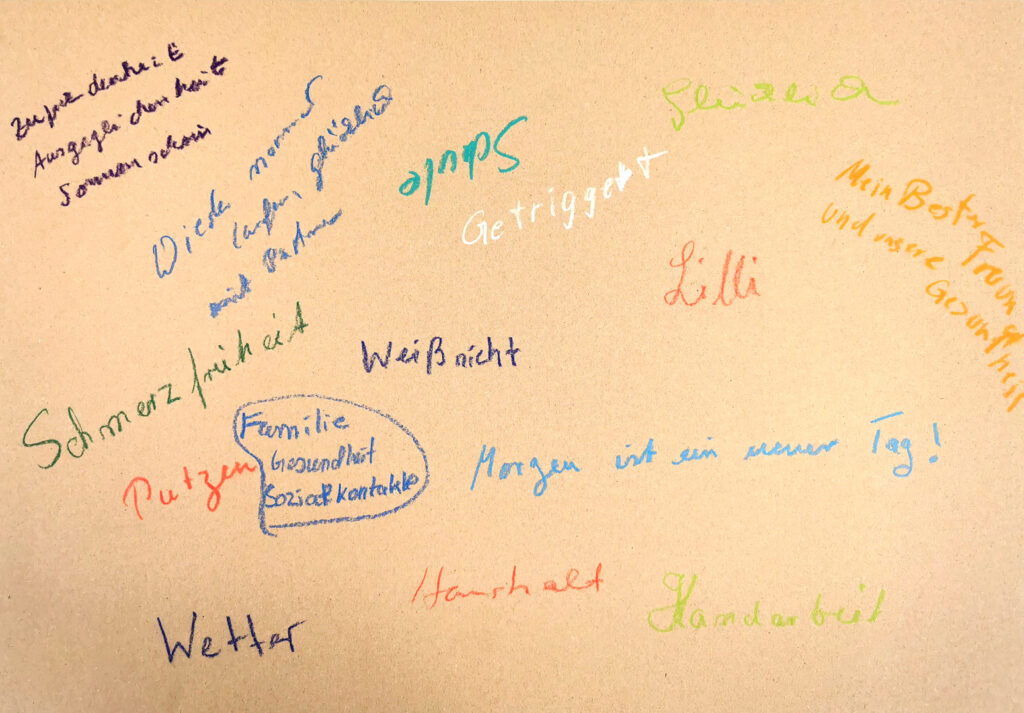 Zufriedenheit
Ausgeglichenheit
Sonnenschein
Wieder normal
laufen, glücklich
mit Partner
Schule
Glücklich
Getriggert
Mein Bester Freund
und unsere Gesundheit
Lilli
Weiß nicht
Schmerzfreiheit
Familie
Gesundheit
Sozialkontakte
Putzen
Morgen ist ein neuer Tag!
Haushalt
Handarbeit
Wetter